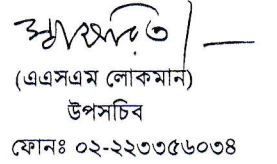 স্বাক্ষরিত/—
(এএসএম লোকমান)
উপসচিব
ফোনঃ ০২-২২৩৩৫৬০৩৪